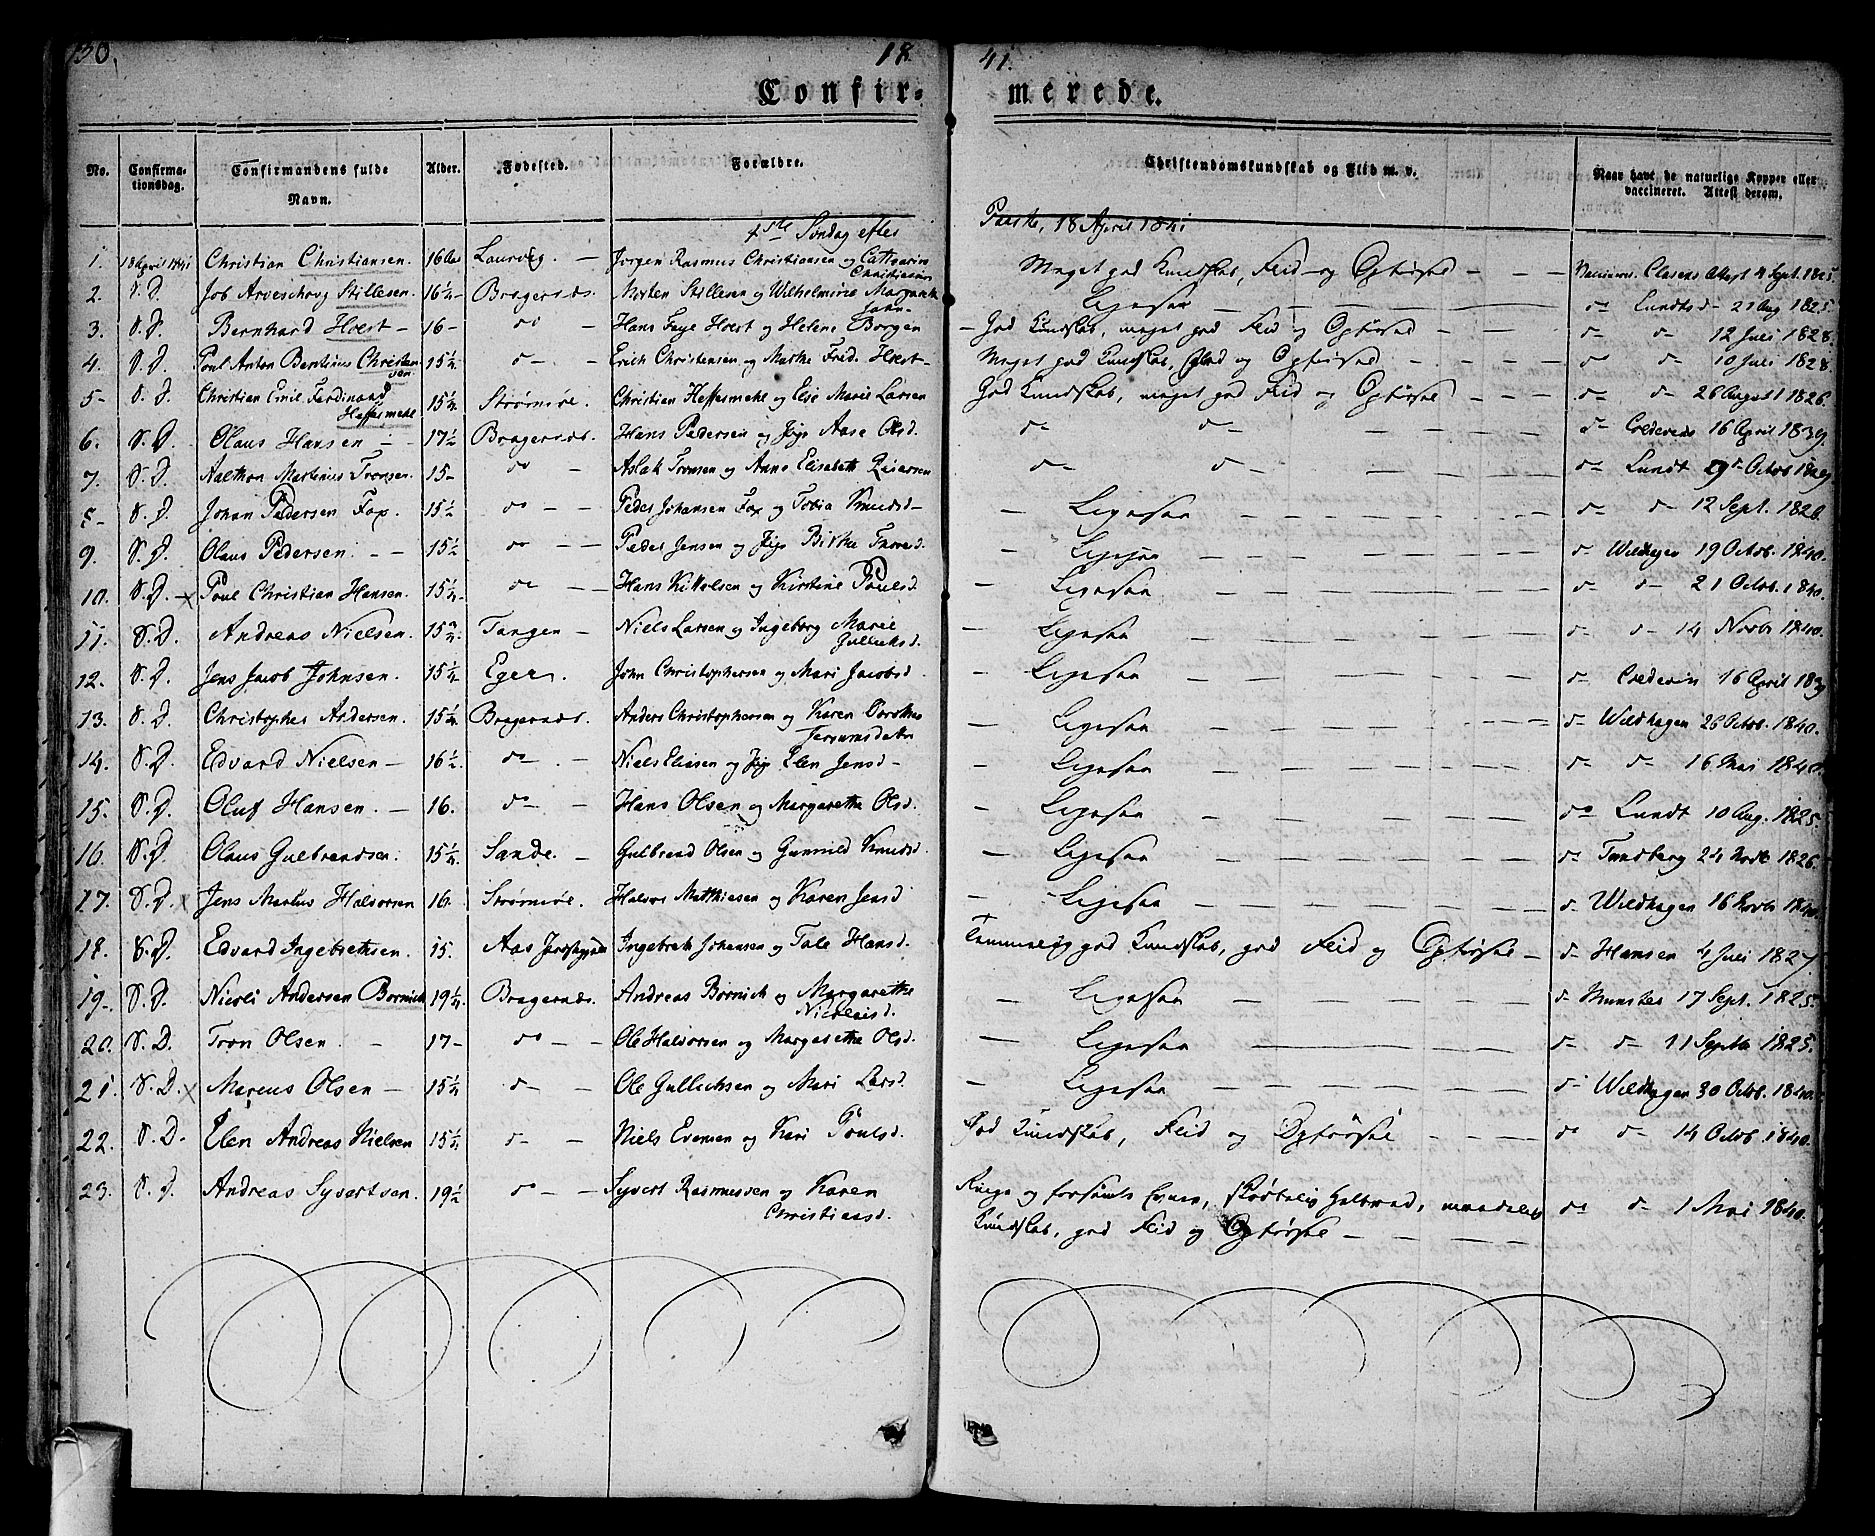 130.
18
41.
Confir-
merede.
No.
Confirma-
tionsdag.
Confirmandens fulde
Navn.
Alder.
Fødested.
Forældre.
Christendomskundskab og Flid m. v.
Naar havt de naturlige Kopper eller
vaccineret. Attest derom.
1ste Søndag efter Paaske, 18 April 1841
1. 18 April 1841 Christian Christiansen. Laurvig. Jørgen Rasmus Christiansen og Cathar. Christiansen Meget god Kundskab, Flid og Opførsel Clasens Attest 4 Sept. 1825.
2. S. D. Job Stillesen. 16¼ Bragernæs. Morten Stillesen og Wilhelmine Margarethe Ligesaa do Lundts do 21 Aug 1825.
3. S. D. Bernhard Hoest 16 do Hans Faye Hoest og Helene Borgen God Kundskab, meget god Flid og Opførsel do do 12 Juli 1828.
4. S. D. Poul Anton Berntinus Christensen 15¼ do Erich Christensen og Marthe Fred. Hoest Meget god Kundskab, Flid og Opførsel do do 10 Juli 1828.
5 S. D. Christian Emil Ferdinand Haffesmehl 15¼ Strømsøe. Christian Heffesmehl og Else Marie Larsen God Kundskab, meget god Flid og Opførsel do do 26 August 1826.
6. S. D. Olaus Hansen 17½ Bragernæs. Hans Pedersen og Aase Olsd. do do do 16 April 1839.
7. S. D. Martinus Tronsen 15 do Aslak Tronsen og Anne Elisabeth Reiersen do do do Lundt Octob
8 S. D. Johan Pedersen Fox. 15½ do Peder Johansen Fox og Tobia Knudsd Ligesaa do do 12 Sept. 1826.
9. S. D. Olaus Pedersen 15½ do Peder Jensen og Birthe Ligesaa do Wildhagen 19 Octob. 1840.
10. S. D. x Poul Christian Hansen. 15¼ do Hans og Kirstine Poulsd Ligesaa do do 21 Octob. 1840.
11. S. D. Andreas Nielsen. Tangen Niels Larsen og Ingeborg Marie Gulliksd. Ligesaa do do 14 Novb 1840.
12. S. D. Jens Jacob Johnsen. 15¼ Eger. John Christophersen og Mari Jacobsd. Ligesaa do 16 April 1839
13. S. D. Christopher Andersen. 15¼ Bragernæs. Anders Christophersen og Karen Dorothea Ligesaa do Wildhagen 26 Octob. 1840.
14. S. D. Edvard Nielsen 16½ do Niels Eliasen og Elen Jensd Ligesaa do do 16 Mai 1840
15. S. D. Oluf Hansen. 16. do Hans Olsen og Margarethe Olsd. Ligesaa do Lundt 10 Aug. 1825.
16 S. D. Olaus Gulbrandsen. 15¼ Sande. Gulbrand Olsen og Gunnild Knudsd. Ligesaa do Tundberg 24 Novb 1826.
17. S. D. x Jens Marius Halvorsen 16. Strømsøe. Halvor Matthiesen og Karen Jensd Ligesaa do Wildhagen 16 Novb 1840.
18. S. D. Edvard Ingebrethsen. 15. Aas Ingebreth Johansen og Tale Hansd. Temmelig god Kundskab, god Flid og Opførsel do Hansen 4 Juli 1827.
19. S. D. Nicoli Andersen Bornich 19¼ Bragernæs. Andreas Bornich og Margarethe Nicolaisd. Ligesaa do Munster 17 Sept. 1825.
20. S. D. Tron Olsen. 17 do Ole Halvorsen og Margarethe Olsd. Ligesaa do do 11 Septb 1825.
21. S. D. x Marcus Olsen 15¼ do Ole Gullichsen og Mari Larsd. Ligesaa do Wildhagen 30 Octob. 1840.
22. S. D. Elen Andreas Nielsen 15½ do Niels Evensen og Kari Poulsd. God Kundskab, Flid og Opførsel do do 14 Octob. 1840.
23. S. D. Andreas Syvertsen. 19½ do Syvert Rasmussen og Karen Christiansd. Ringe og forsømte Evner, Kundskab, god Flid og Opførsel do do 1 Mai 1840.